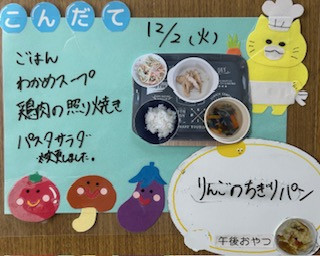 こんだて
12/2(火)
ごはん
わかめスープ
鶏肉の照り焼き
パスタサラダ
変更しました。
りんごのちぎりパン
午後おやつ